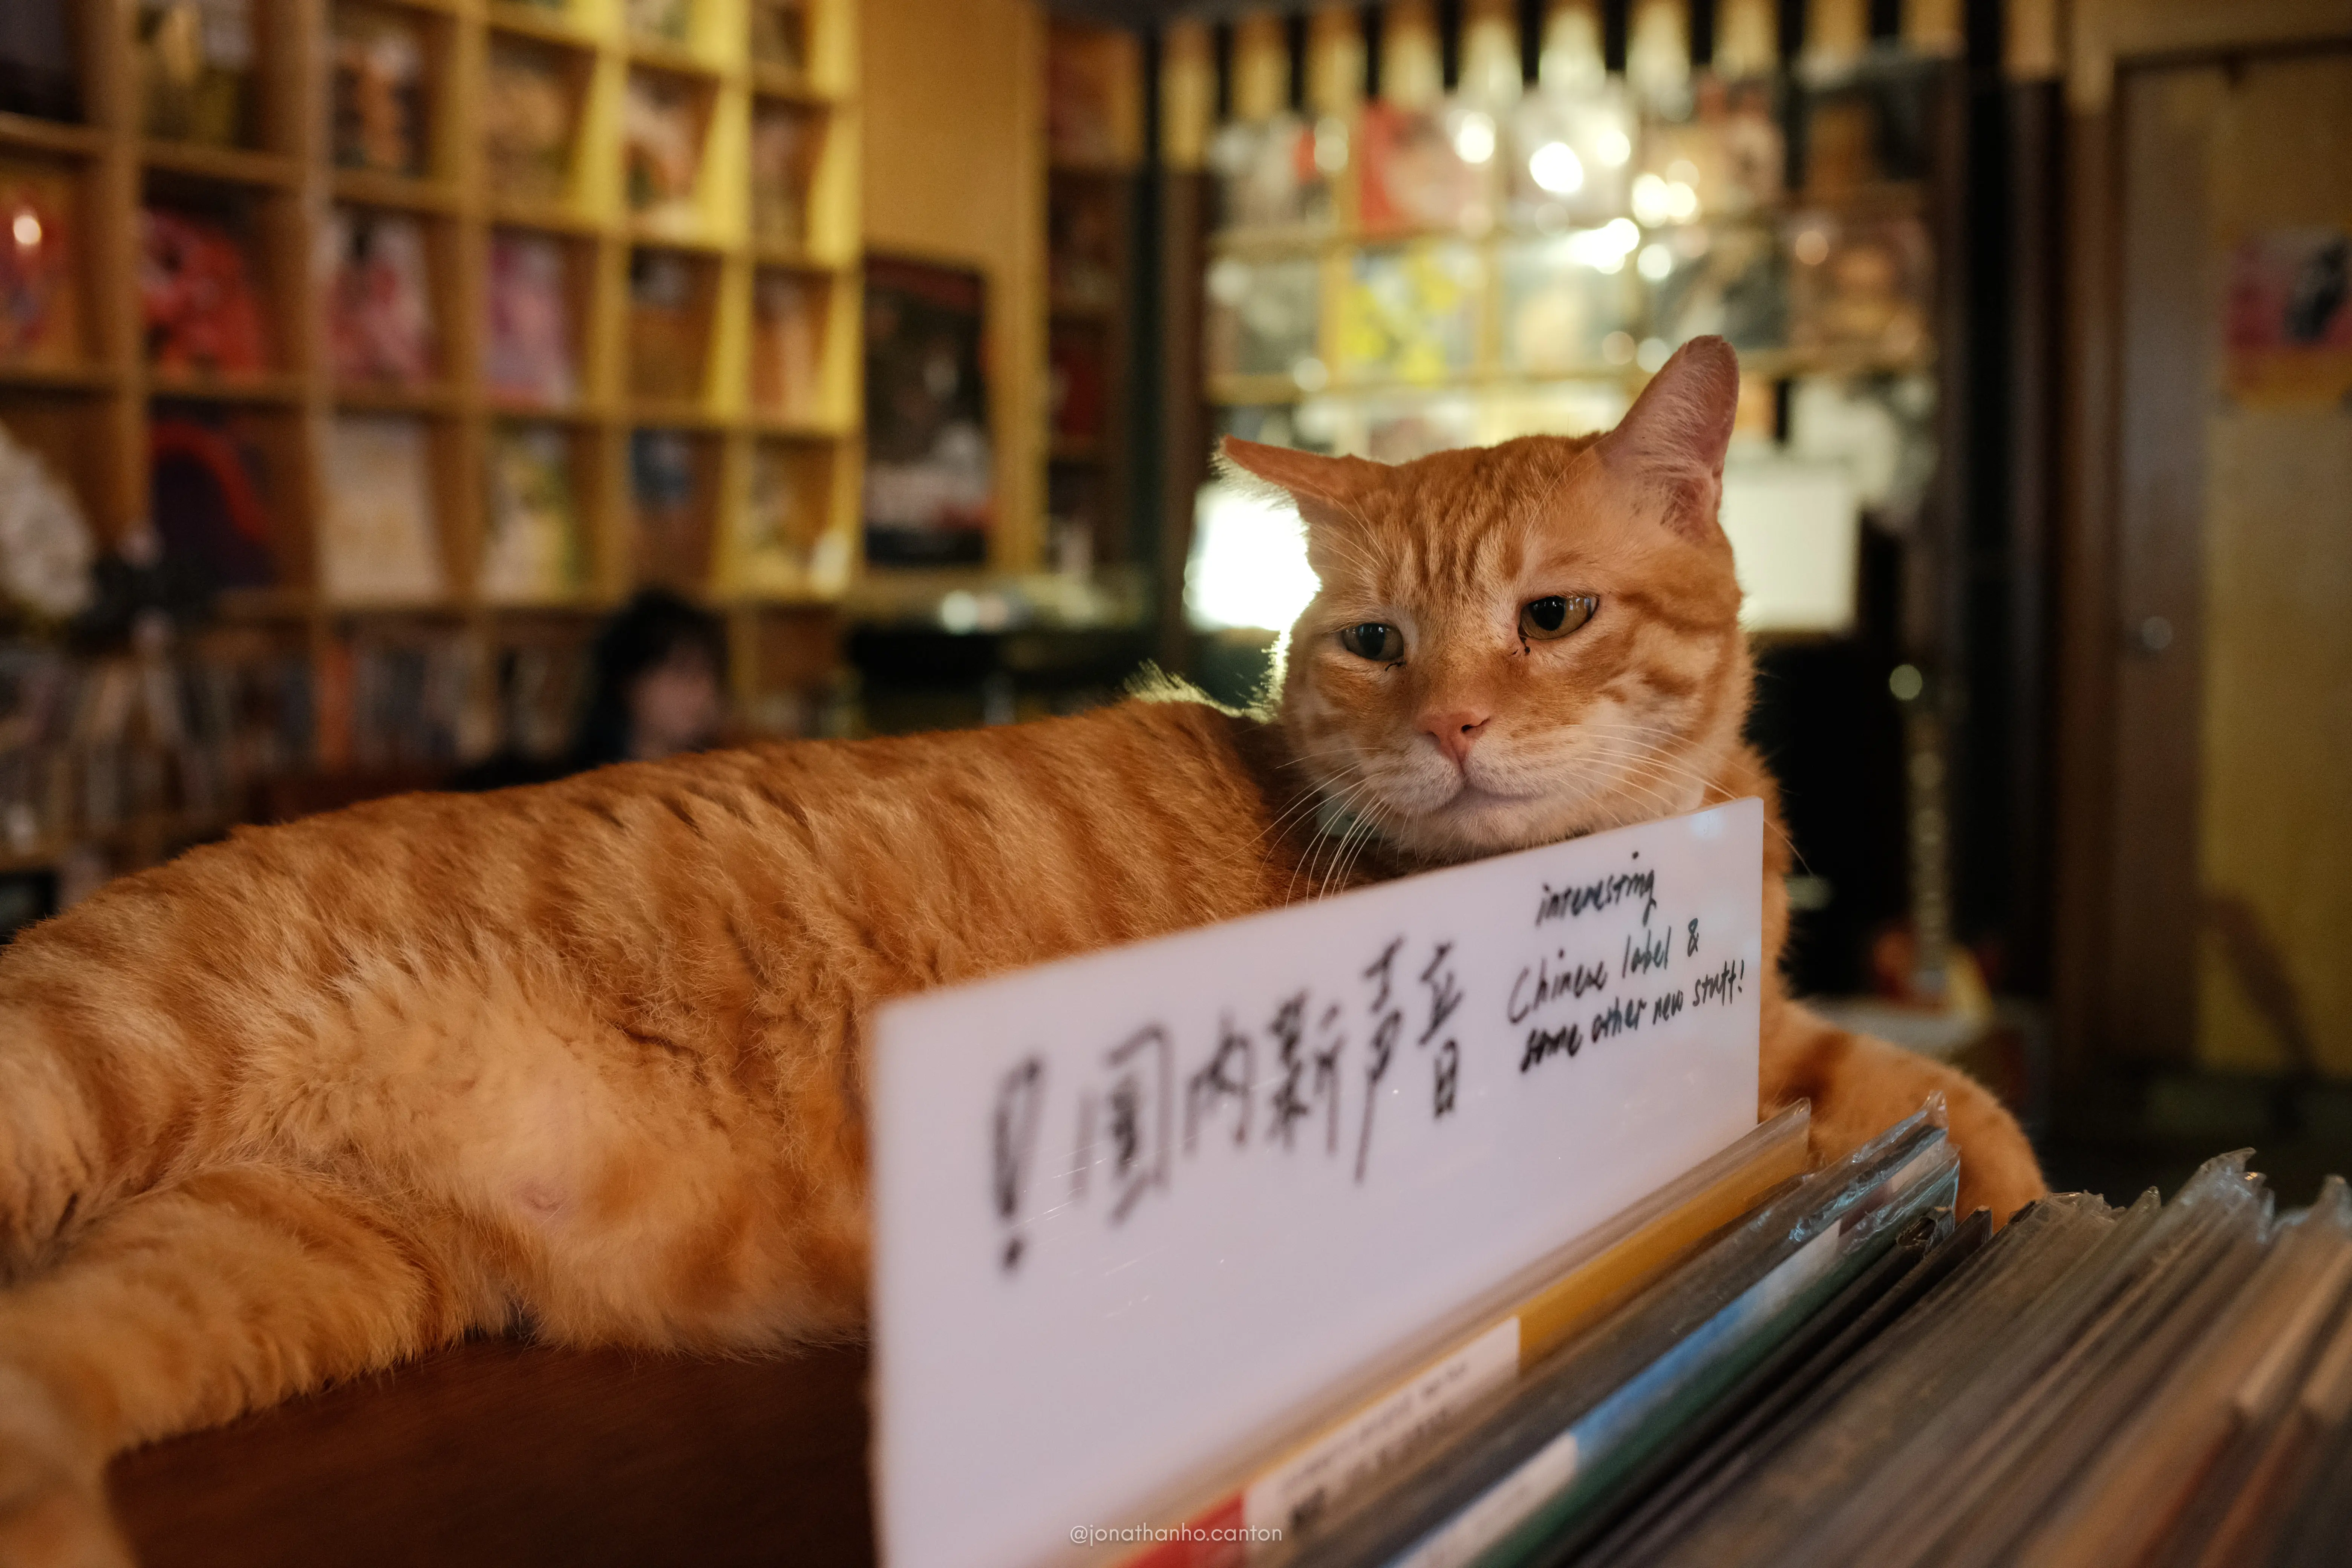 ! 国内新声音
interesting
Chinese label &
some other new stuff!
@jonathanho.canton